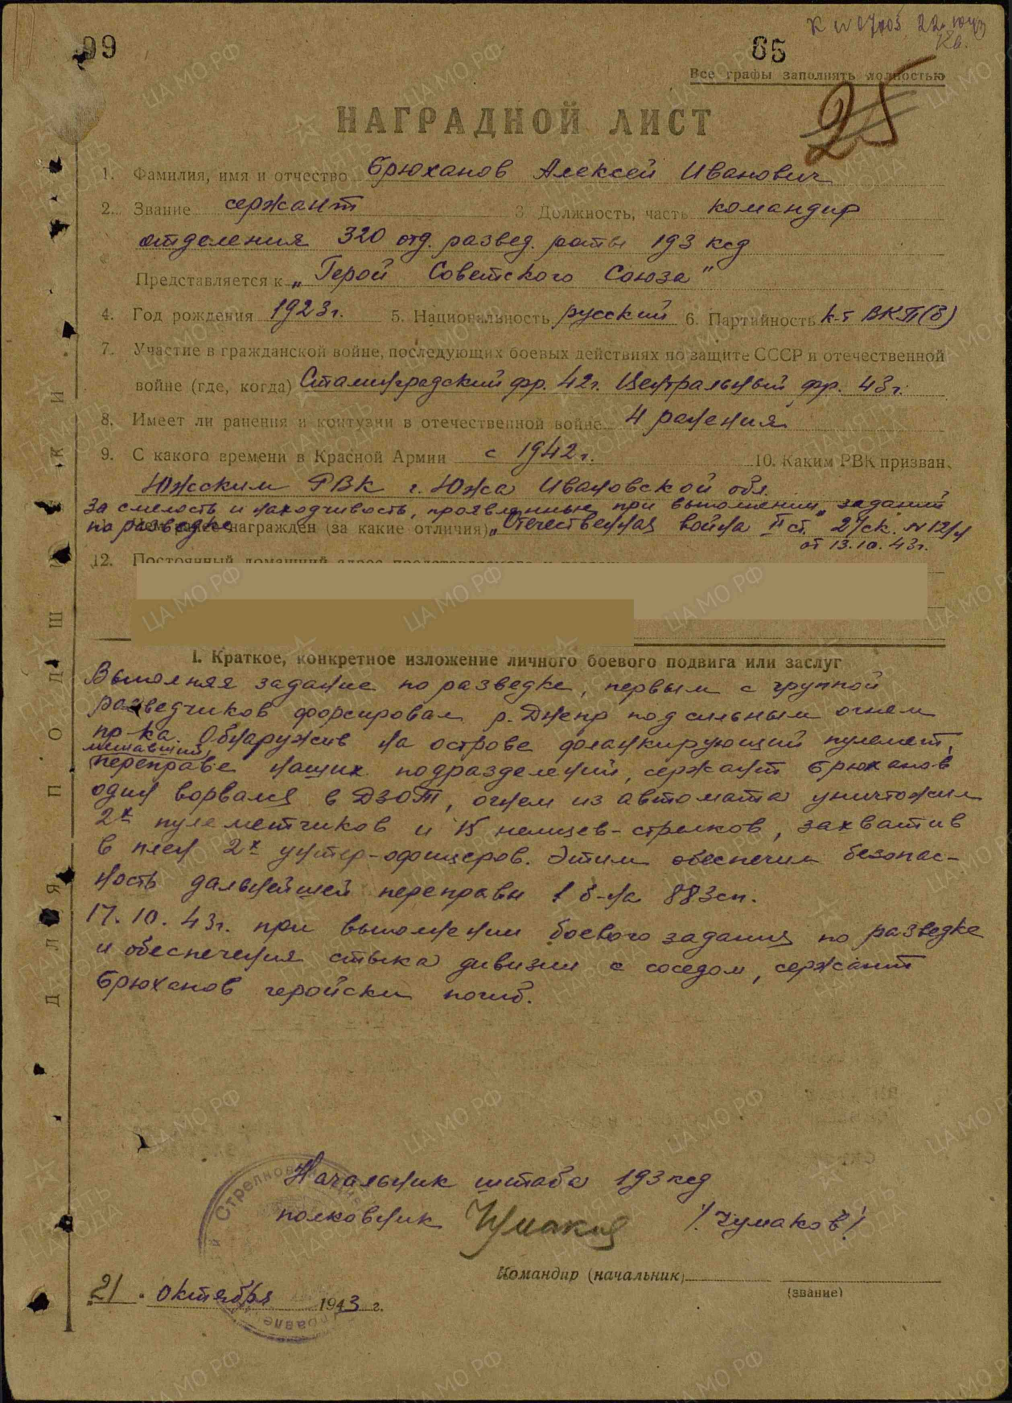 99
65
Все графы заполнять полностью
25
НАГРАДНОЙ ЛИСТ
1. Фамилия, имя и отчество Брюханов Алексей Иванович
2. Звание сержант 3. Должность, часть командир
отделения 320 отд. развед. роты 193 ксд
Представляется к „Герой Советского Союза"
4. Год рождения 1923г. 5. Национальность русский 6. Партийность к-т ВКП(б)
7. Участие в гражданской войне, последующих боевых действиях по защите СССР и отечественной
войне (где, когда) Сталинградский фр. 42г. Центральный фр. 43г.
8. Имеет ли ранения и контузии в отечественной войне 4 ранения
9. С какого времени в Красной Армии с 1942г. 10. Каким РВК призван
Южским РВК г. Южа Ивановской обл.
За смелость и находчивость, проявленные при выполнении заданий
по разведке награжден (за какие отличия) „Отечественная война II ст. 21ск. №12/н
от 13.10.43г.
12. Постоянный домашний адрес
I. Краткое, конкретное изложение личного боевого подвига или заслуг
Выполняя задание по разведке, первым с группой
разведчиков форсировал р. Днепр под сильным огнем
пр-ка. Обнаружив на острове фланкирующий пулемет,
мешавший
переправе наших подразделений, сержант Брюханов
один ворвался в ДЗОТ, огнем из автомата уничтожил
2х пулеметчиков и 15 немцев-стрелков, захватив
в плен 2х унтер-офицеров. Этим обеспечил безопас-
ность дальнейшей переправы 1 б-на 883сп.
17.10.43г. при выполнении боевого задания по разведке
и обеспечения стыка дивизии с соседом, сержант
Брюханов геройски погиб.
Начальник штаба 193ксд
полковник Чумаков /Чумаков/
Командир (начальник)
(звание)
21. октября 1943 г.
ДЛЯ ПОДШИВКИ